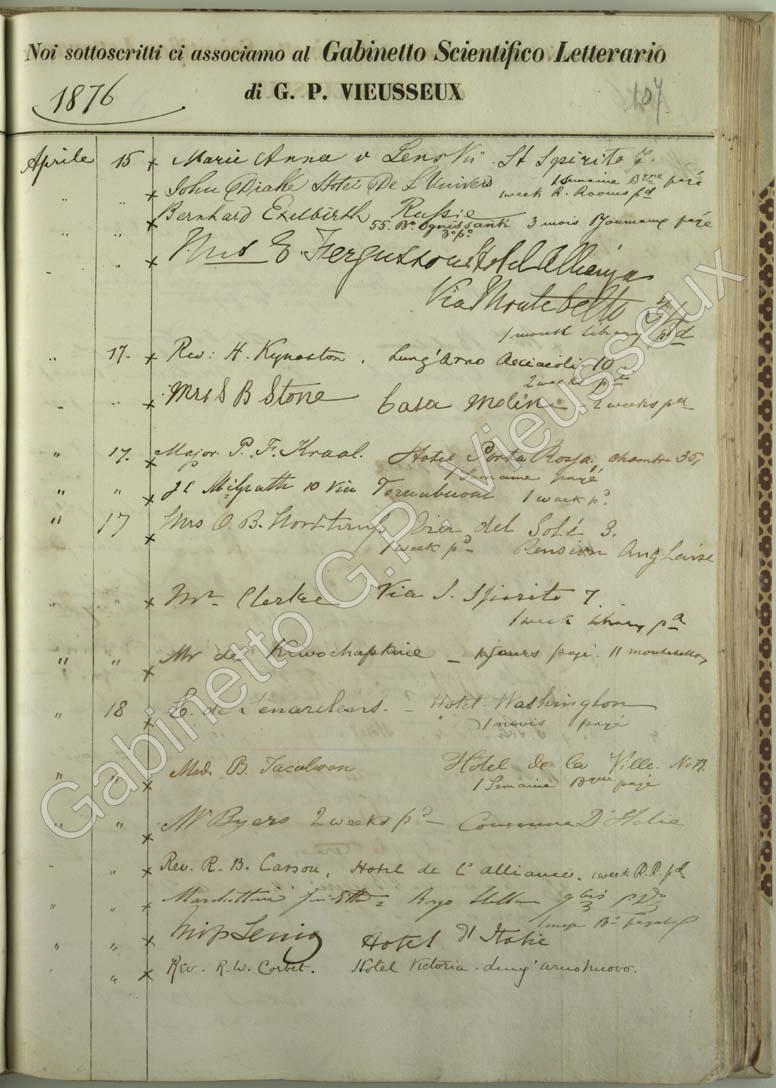 Noi sottoscritti ci associamo al Gabinetto Scientifico Letterario
di G. P. VIEUSSEUX
1876
107
Aprile 15 x Marie Anna v Lenski St Spirito 7.
1 Semaine Bque payé
" " x John Drake Hotel De L'Univers week R. Rooms pd
" " x Bernhard Exelbirth Russie
55. Bo Ognissanti 3 mois Journaux payé
3o po
" " x Mrs E. Fergusson Hotel Allianza
Via Montebello
1 month library pd
" 17. x Rev: H. Kynaston. Lung'Arno Acciaioli 10
2 weeks pd
" " x Mrs S B Stone Casa Molini 2 weeks pd
" 17. x Major P. F. Kraal. Hotel Porta Rossa, chambre 35,
1 Semaine payé
" " x McGrath 10 Via Tornabuoni 1 week pd
" 17 x Mrs O. B. Via del Sole 3.
1 week pd Pension Anglaise
" " x Mr Clerke Via S. Spirito 7.
1 week library pd
" " x Mr de Kriwochapkine – jours payé. 11 montebello
" 18 x E. de – Hotel Washington
1 mois payé
" " x Mad. B. Jacobson Hotel de la Ville. No
1 Semaine Bque payé
" " x Mr Byers 2 weeks pd – Couronna D'Italie
" " x Rev. R. B. Carson, Hotel de l'alliance. 1 week R.R. pd
" " x Borgo
" " x Miss Hotel d'Italie
" x Rev. R. W. Corbet. Hotel Victoria. Lung'arno nuovo.
Gabinetto G.P. Vieusseux